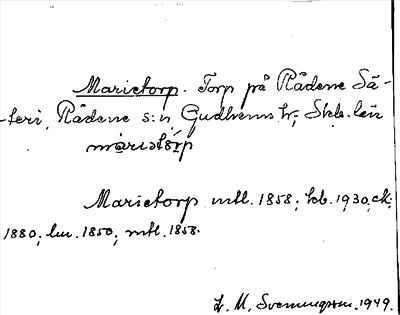 Marietorp. Torp på Rådene Sä-
teri, Rådene s:n Gudhems hr, Skb. län
maristórp
Marietorp mtl. 1858; kb. 1930, ek.
1880; lm. 1850; mtl. 1858.
L. M. Svenungsson. 1949.